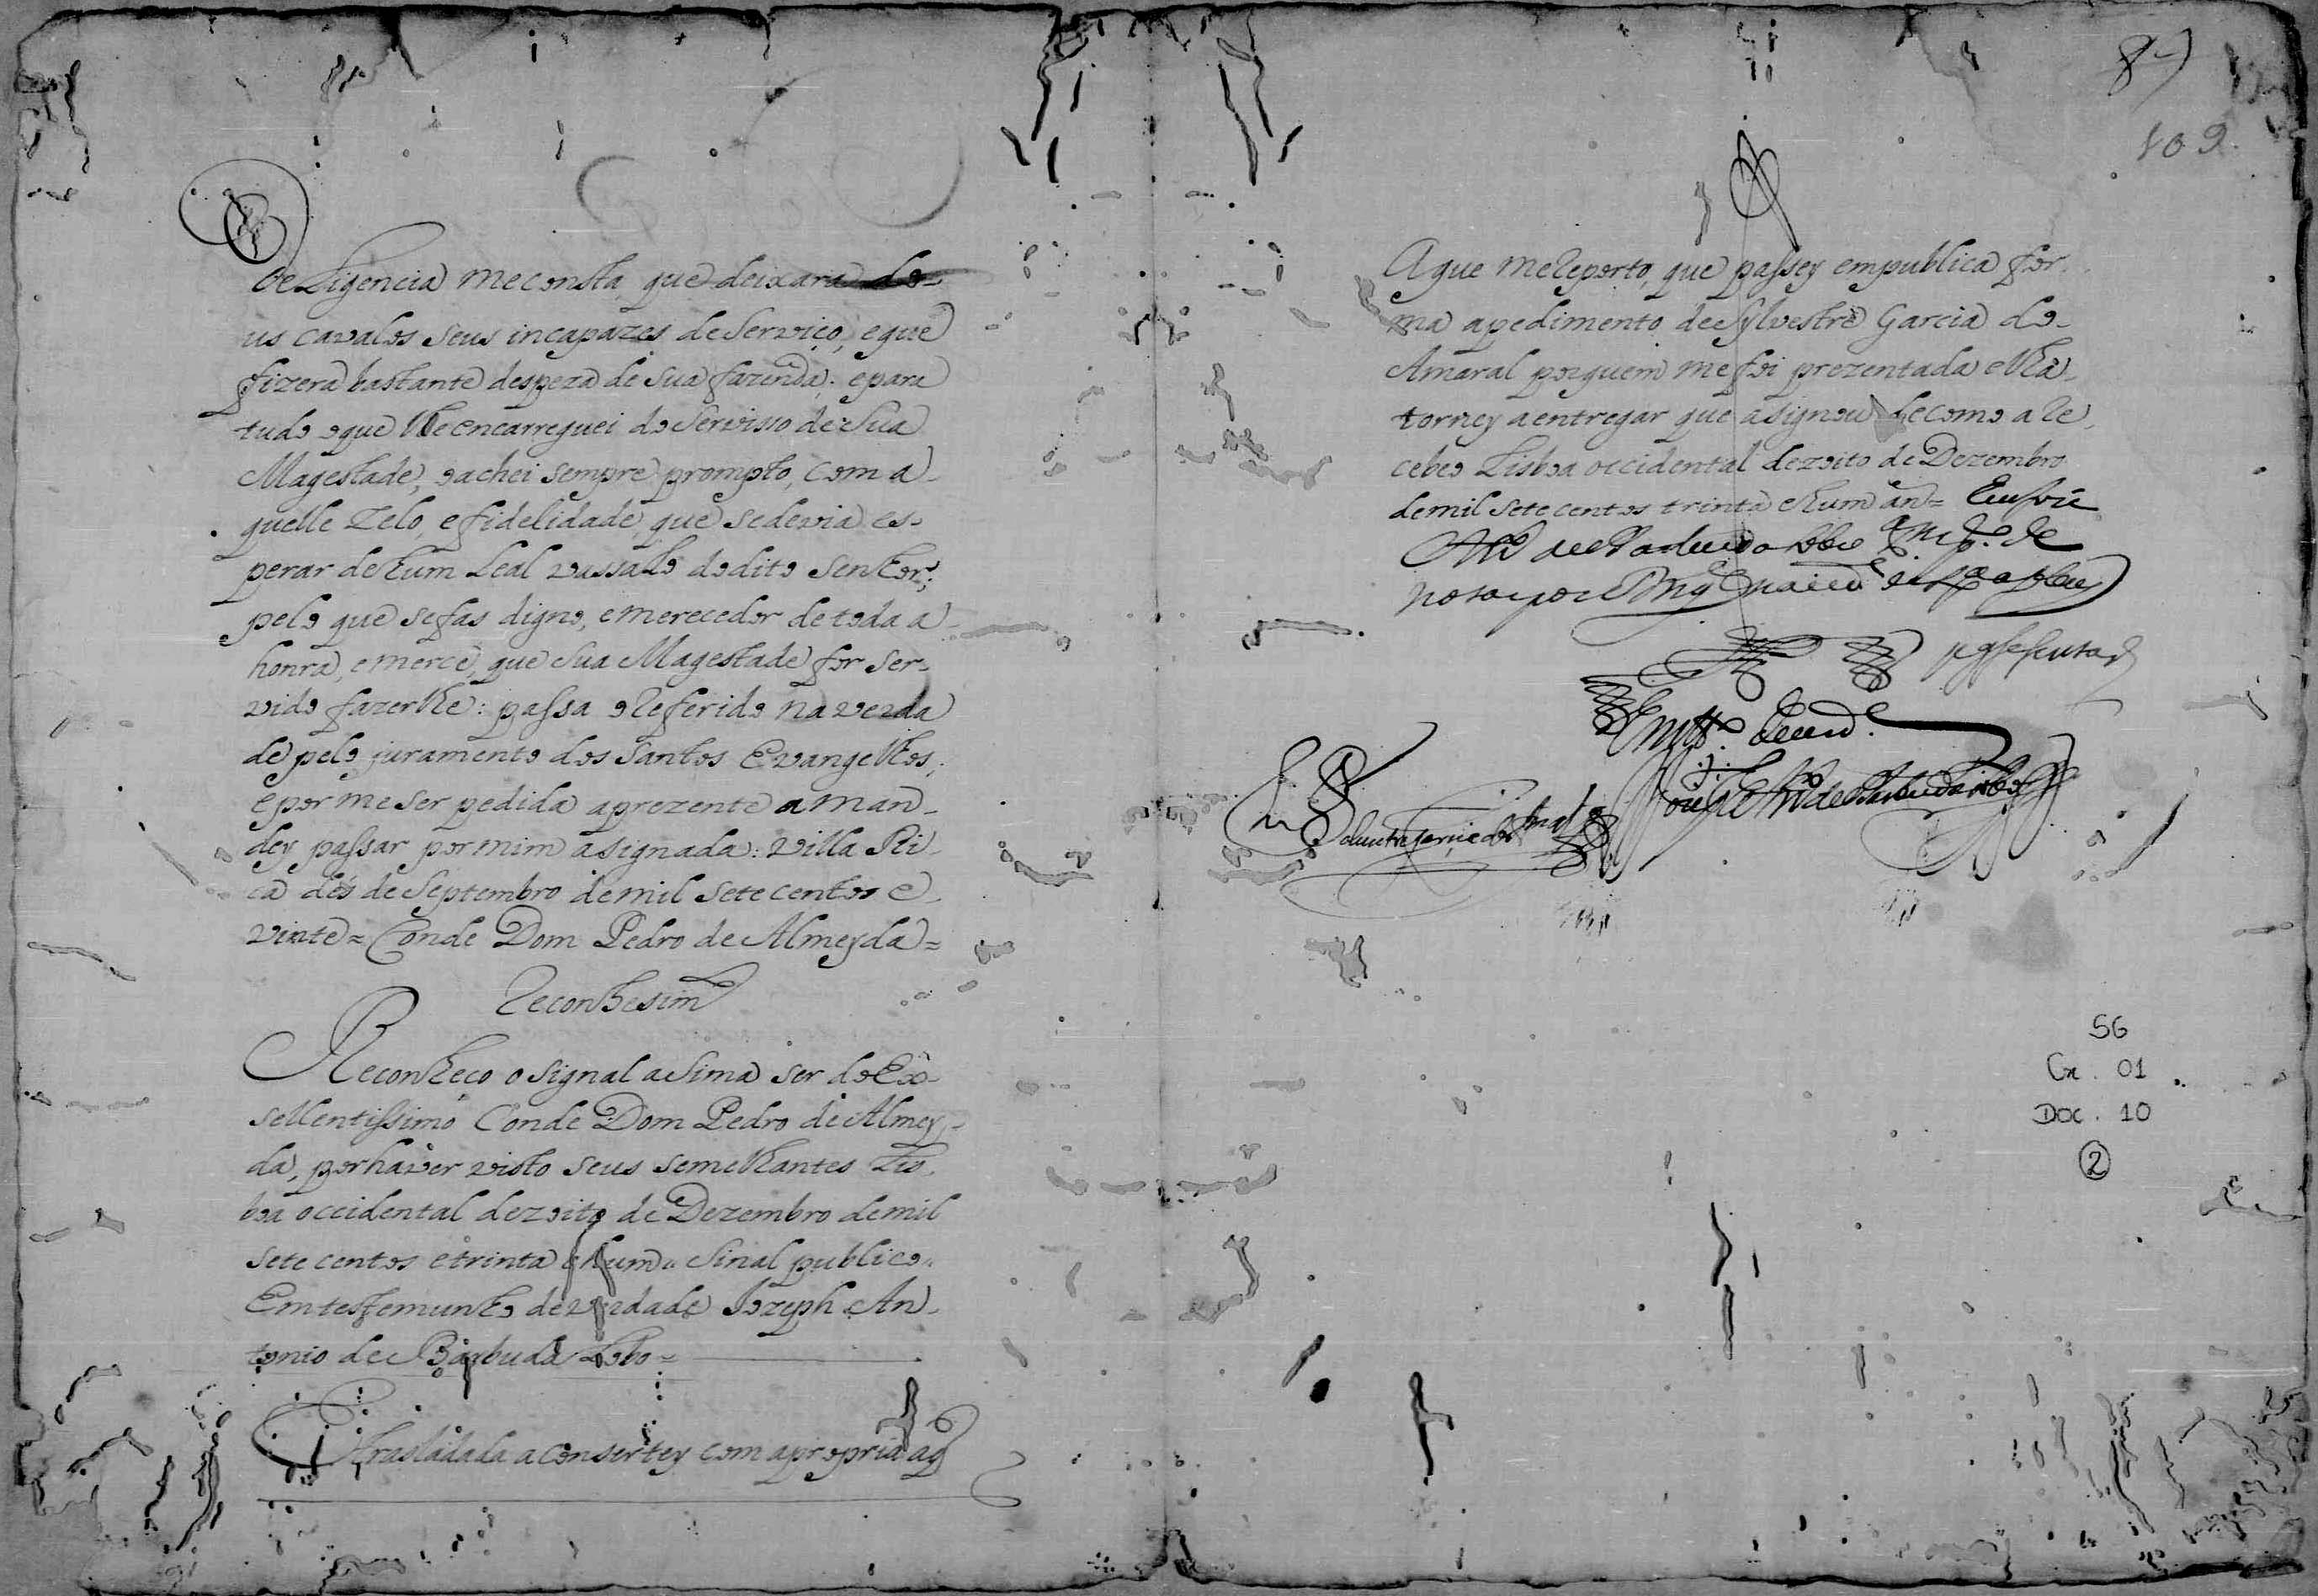 deLigencia meconsta que deixara do-
us cavalos seus incapazes de Serviço, eque
fizera bastante despeza de Sua fazenda; epara
tudo oque lheencarreguei do Servisso de Sua
Magestade, oachei sempre prompto, com a-
quelle Zelo, efidelidade, que sedevia es-
perar dehum Leal vassalo dodito Senhor;
pelo que sefas digno, emerecedor detoda a
honra, emerce, que Sua Magestade for Ser-
vido fazerlhe: passa oReferido naverda
de pelo juramento dos Santos Evangelhos,
epor meser pedida aprezente a man-
dey passar pormim asignada: Villa Ri-
ca dés de Septembro demil Setecentos e
vinte = Conde Dom Pedro de Almeyda =
Reconhesim
Reconheco o Signal aSima ser doEx-
sellentissimo Conde Dom Pedro de Almey-
da, porhaver visto seus semelhantes Lis-
boa occidental dezoito de Dezembro demil
sete centos etrinta ehum = Sinal publico =
Emtestemunho deverdade Jozeph An-
tonio de Barbuda Lobo =
Trasladada aconsertey com apropria aq
87
109
Aque meReporto, que passey empublica for-
ma apedimento deSylvestre Garcia do
Amaral porquem mefoi prezentada elha
torney aentregar que asignou decomo aRe-
cebeo Lisboa occidental dezoito de Dezembro
demil Sete centos trinta ehum an =
SG
Cx. 01
Doc. 10
2